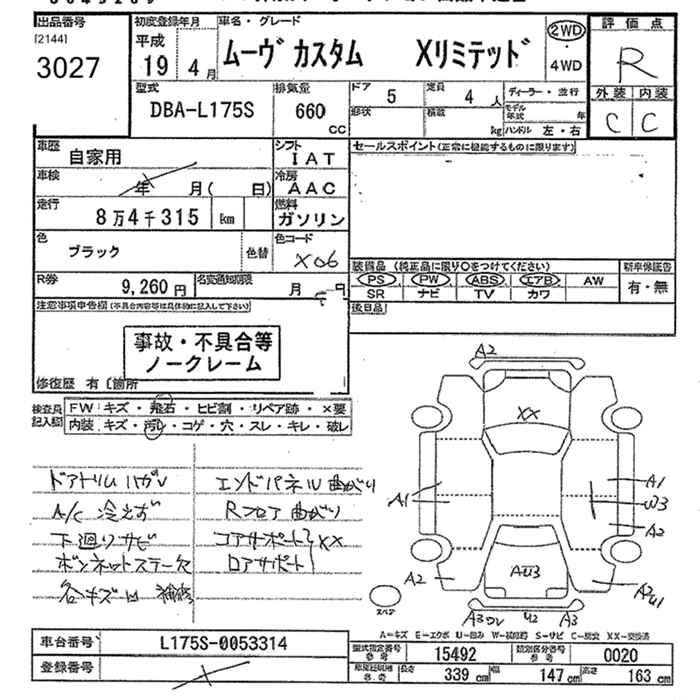 出品番号
[2144]
3027
初度登録年月
平成
19 4月
車名・グレード
ムーヴ カスタム Xリミテッド
2WD
・
4WD
評価点
R
外装 内装
C C
型式
DBA-L175S
排気量
660
CC
ドア 5
定員 4 人
形状
積載 kg
ディーラー・並行
モデル年式 年
ハンドル 左・右
車歴
自家用
シフト
IAT
車検
年 月( 日)
冷房
AAC
走行
8万4千315 km
燃料
ガソリン
色
ブラック
色替
色コード
X06
R券
9,260円
名変通知期限
月 日
セールスポイント(正常に機能するものに限ります)
装備品(純正品に限り○をつけてください)
PS PW ABS エアB AW
SR ナビ TV カワ
新車保証書
有・無
後日品
注意事項申告欄(不具合内容等は具体的に記入して下さい)
事故・不具合等
ノークレーム
修復歴 有〔箇所
検査員
記入欄
FW キズ・飛石・ヒビ割・リペア跡・×要
内装 キズ・汚れ・コゲ・穴・スレ・キレ・破レ
ドアトリムハガレ
A/C 冷えず
下廻りサビ
ボンネットステー欠
各キズ凹 補修
エンドパネル曲がり
Rフロア曲がり
コアサポート XX
ロアサポート
A2
XX
A1
A1
W3
A2
A2
AU3
A2
U1
スペア
A3 U2 A3
A=キズ E=エクボ U=凹み W=補修跡 S=サビ C=腐食 XX=交換済
車台番号
L175S-0053314
登録番号
型式指定番号
参考
15492
類別区分番号
参考
0020
長さ 339 cm
幅 147 cm
高さ 163 cm